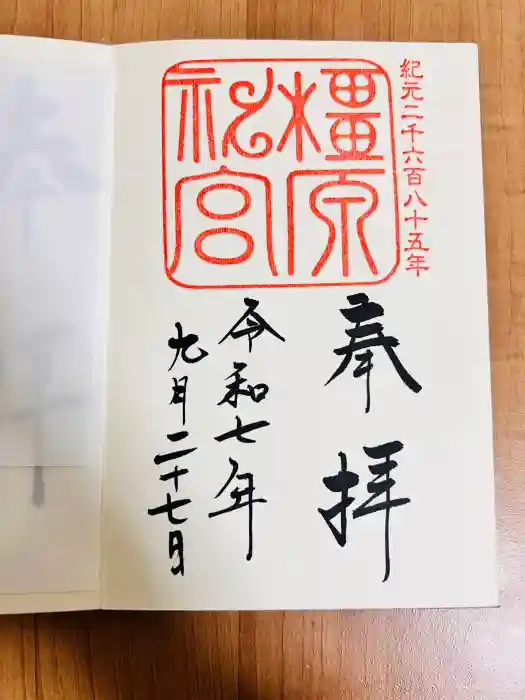 紀元二千六百八十五年
橿原
神宮
奉拝
令和七年
九月二十七日